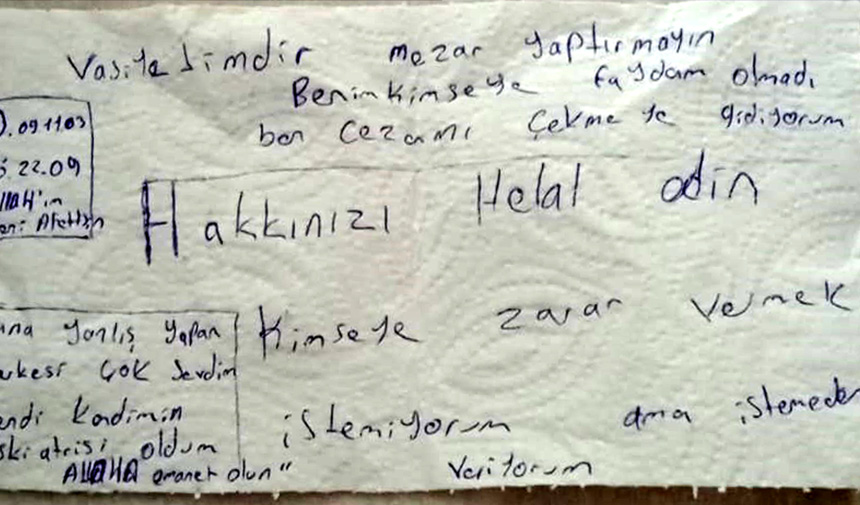 Vasiyetimdir mezar yaptırmayın
Benim kimseye faydam olmadı
ben Cezamı Çekmeye gidiyorum
09 1103
22.09
Hakkınızı Helal edin
yanlış yapan
ÇOK Sevdim
Kadimin
oldum
ALLAHA emanet olun"
Kimseye zarar Vermek
istemiyorum ama istemeden
Veriyorum